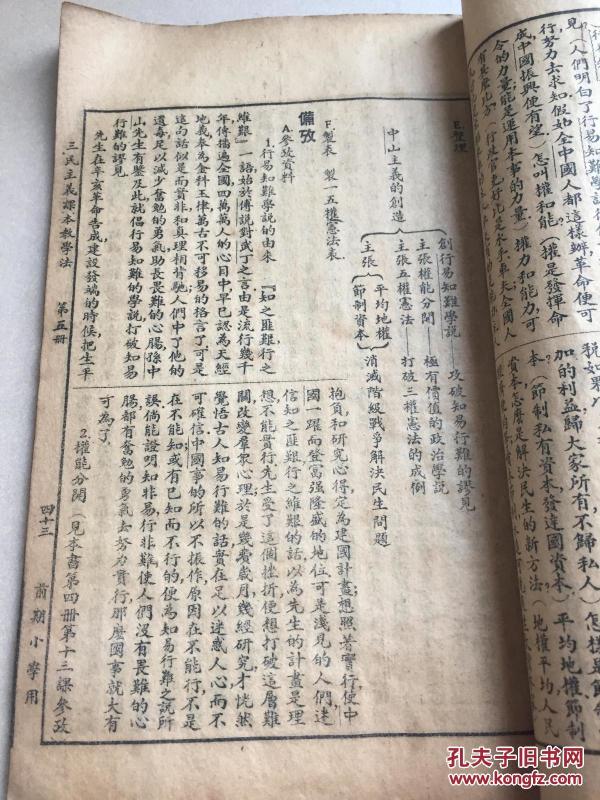 見（人們明白了行易知難
行努力去求知，假如全中國人都這樣辦革命便可
成中國振興便有望）怎叫權和能（權是發揮命
令的力量，能是運用本事的力量）權力和能力，可
加的利益歸大家所有，不歸私人
本，節制私有資本，發達國資本
資本，怎麼是解決民生的新方法（地權平均，人民
平均地權節制
E.整理
中山主義的創造
創行易知難學說——攻破知易行難的謬見
主張權能分開——極有價值的政治學說
主張五權憲法——打破三權憲法的成例
主張 平均地權 節制資本 消滅階級戰爭解決民生問題
F.製表 製一五權憲法表
備攷
A.參攷資料
1.行易知難學說的由來 『知之匪艱行之
維艱』一語始於傅說對武丁之言由是流行幾千
年傳播遍全國四萬萬人的心目中早已認為天經
地義奉為金科玉律萬古不可移易的格言了可是
這句話似是而實非和真理相背馳人們中了他的
遺毒足以減少奮勉的勇氣助長畏難的心腸孫中
山先生有鑒及此就倡行易知難的學說打破知易
行難的謬見
先生在辛亥革命告成建設發端的時候把生平
抱負和研究心得定為建國計畫想照著實行使中
國一躍而登富強隆盛的地位可是淺見的人們迷
信知之匪艱行之維艱的話以為先生的計畫是理
想不能實行先生受了這個挫折便想打破這層難
關改變羣眾心理於是幾費歲月幾經研究才恍然
覺悟古人知易行難的話實在足以迷惑人心而不
可確信中國事的所以不振作原因在不能行不是
在不能知或有已知而不行的便為知易行難之說所
誤倘能證明知非易行非難使人們沒有畏難的心
腸都有奮勉的勇氣去努力實行那麼國事就大有
可為了
2.權能分開（見本書第四冊第十三課參攷
三民主義課本教學法 第五冊 四十三 前期小學用
孔夫子旧书网
www.kongfz.com